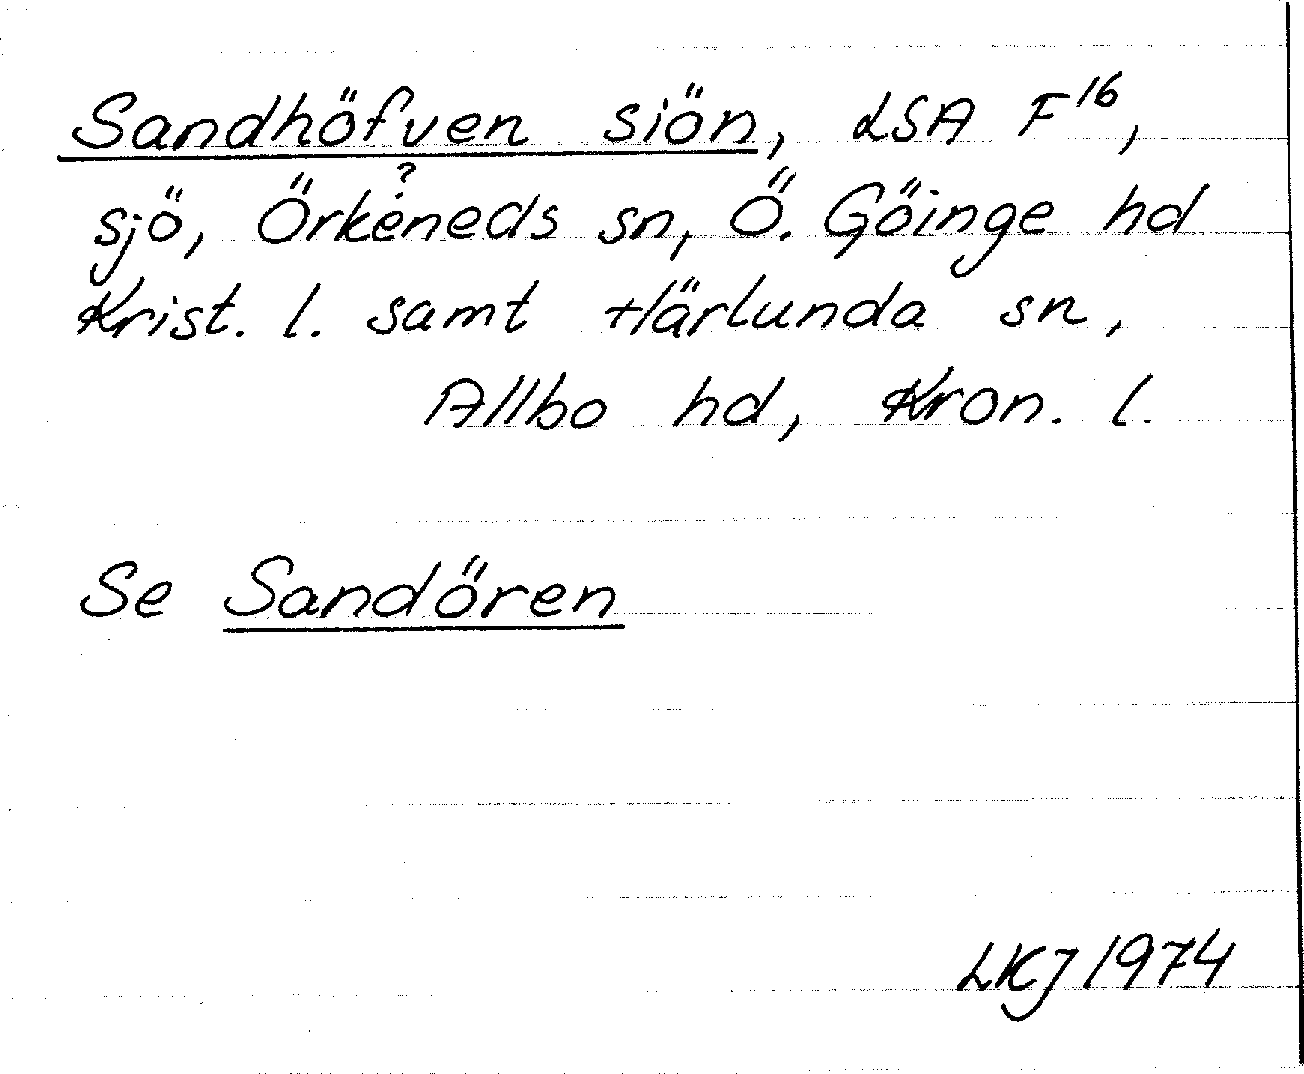 Sandhöfven siön, LSA F16,
sjö, Örkeneds sn, Ö. Göinge hd
Krist. l. samt Härlunda sn,
Allbo hd, Kron. l.
Se Sandören
LKJ 1974